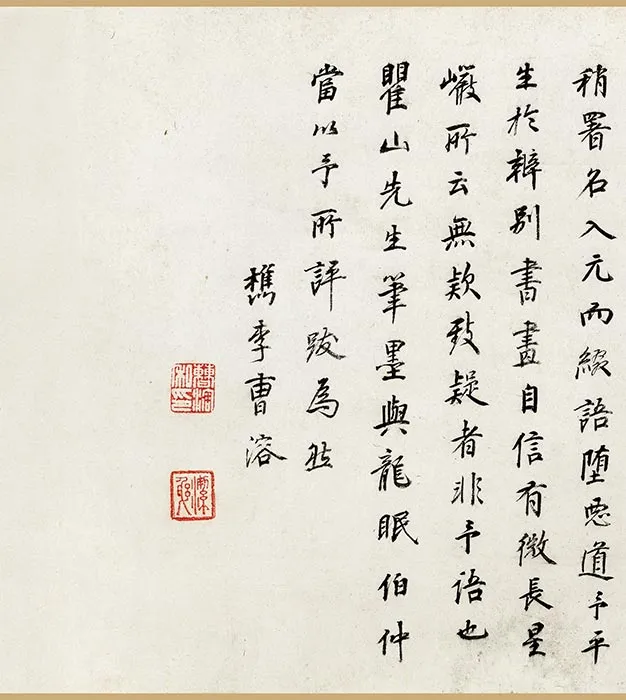 稍署名入元而綴語堕惡道予平
生於辨別書畫自信有微長星
巖所云無款致疑者非予語也
瞿山先生筆墨與龍眠伯仲
當以予所評跋為然
檇李曹溶
曹溶私印
潔躬